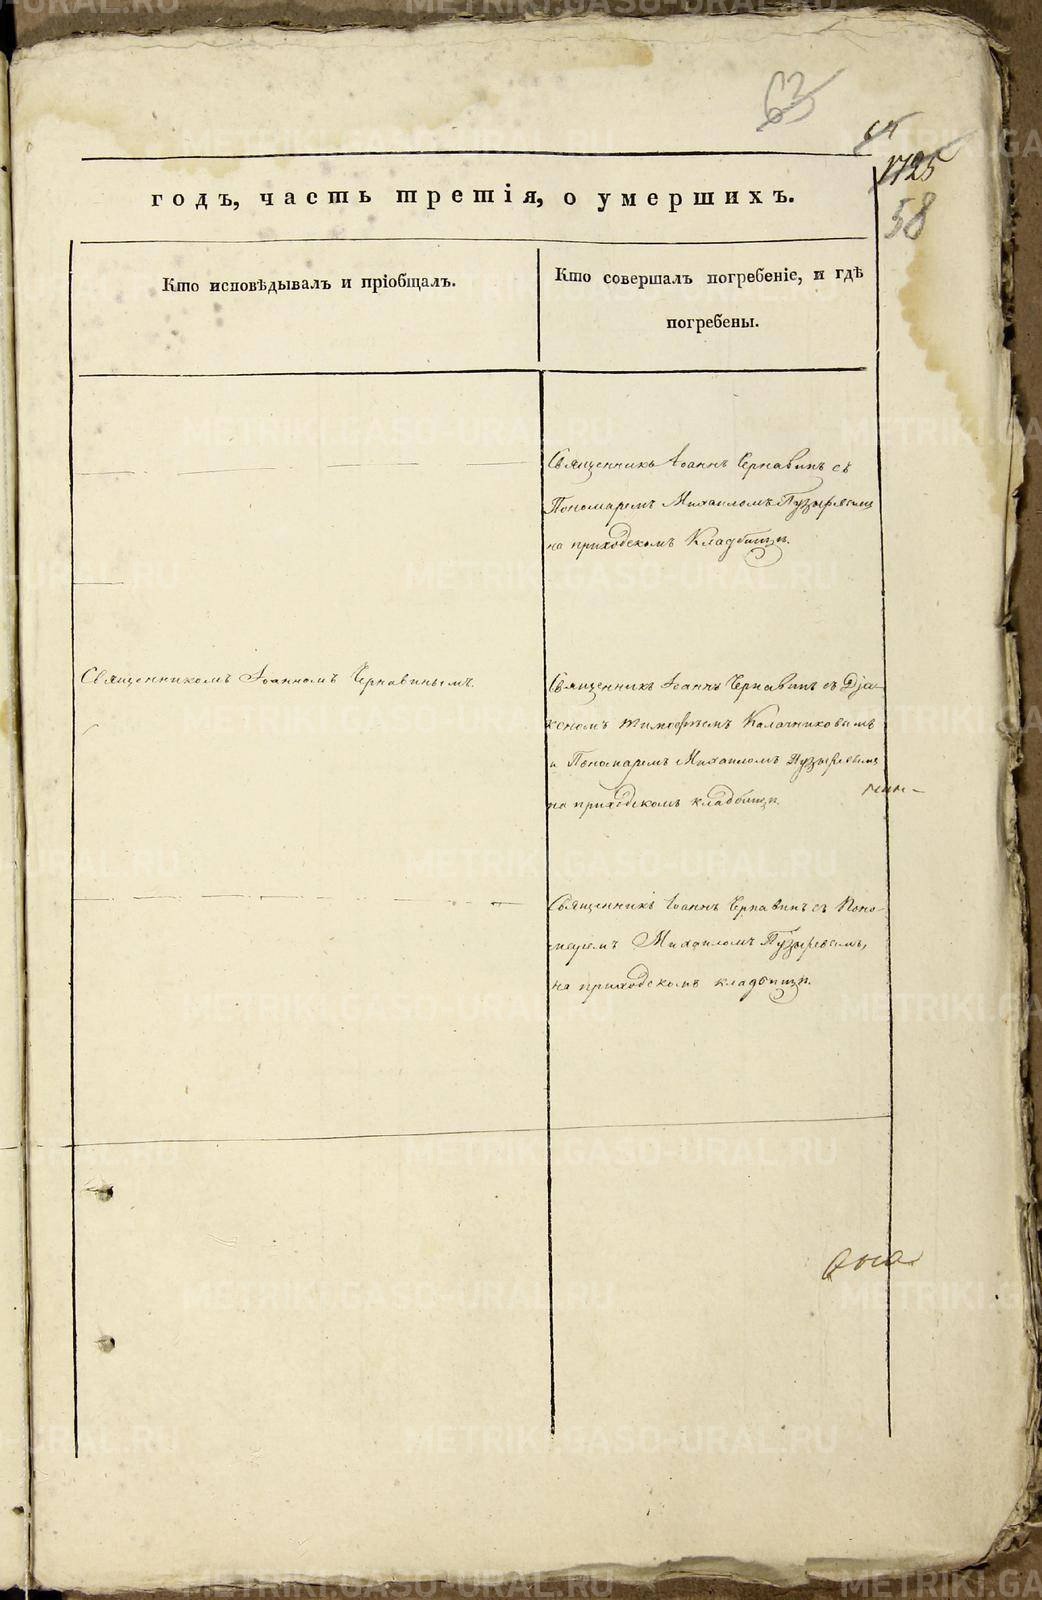 63
64
1725
58
годъ, часть третія, о умершихъ.
Кто исповѣдывалъ и пріобщалъ.
Кто совершалъ погребеніе, и гдѣ
погребены.
Священникъ Іоаннъ Чернавинъ съ
Пономаремъ Михаиломъ Пузыревымъ
на приходскомъ Кладбищѣ.
Священникомъ Іоанномъ Чернавинымъ.
Священникъ Іоаннъ Чернавинъ съ Діа-
кономъ Тимофеемъ Калачниковымъ
и Пономаремъ Михаиломъ Пузыревымъ
на приходскомъ кладбищѣ.
Священникъ Іоаннъ Чернавинъ съ Поно-
маремъ Михаиломъ Пузыревымъ,
на приходскомъ кладбищѣ.
METRIKI.GASO-URAL.RU